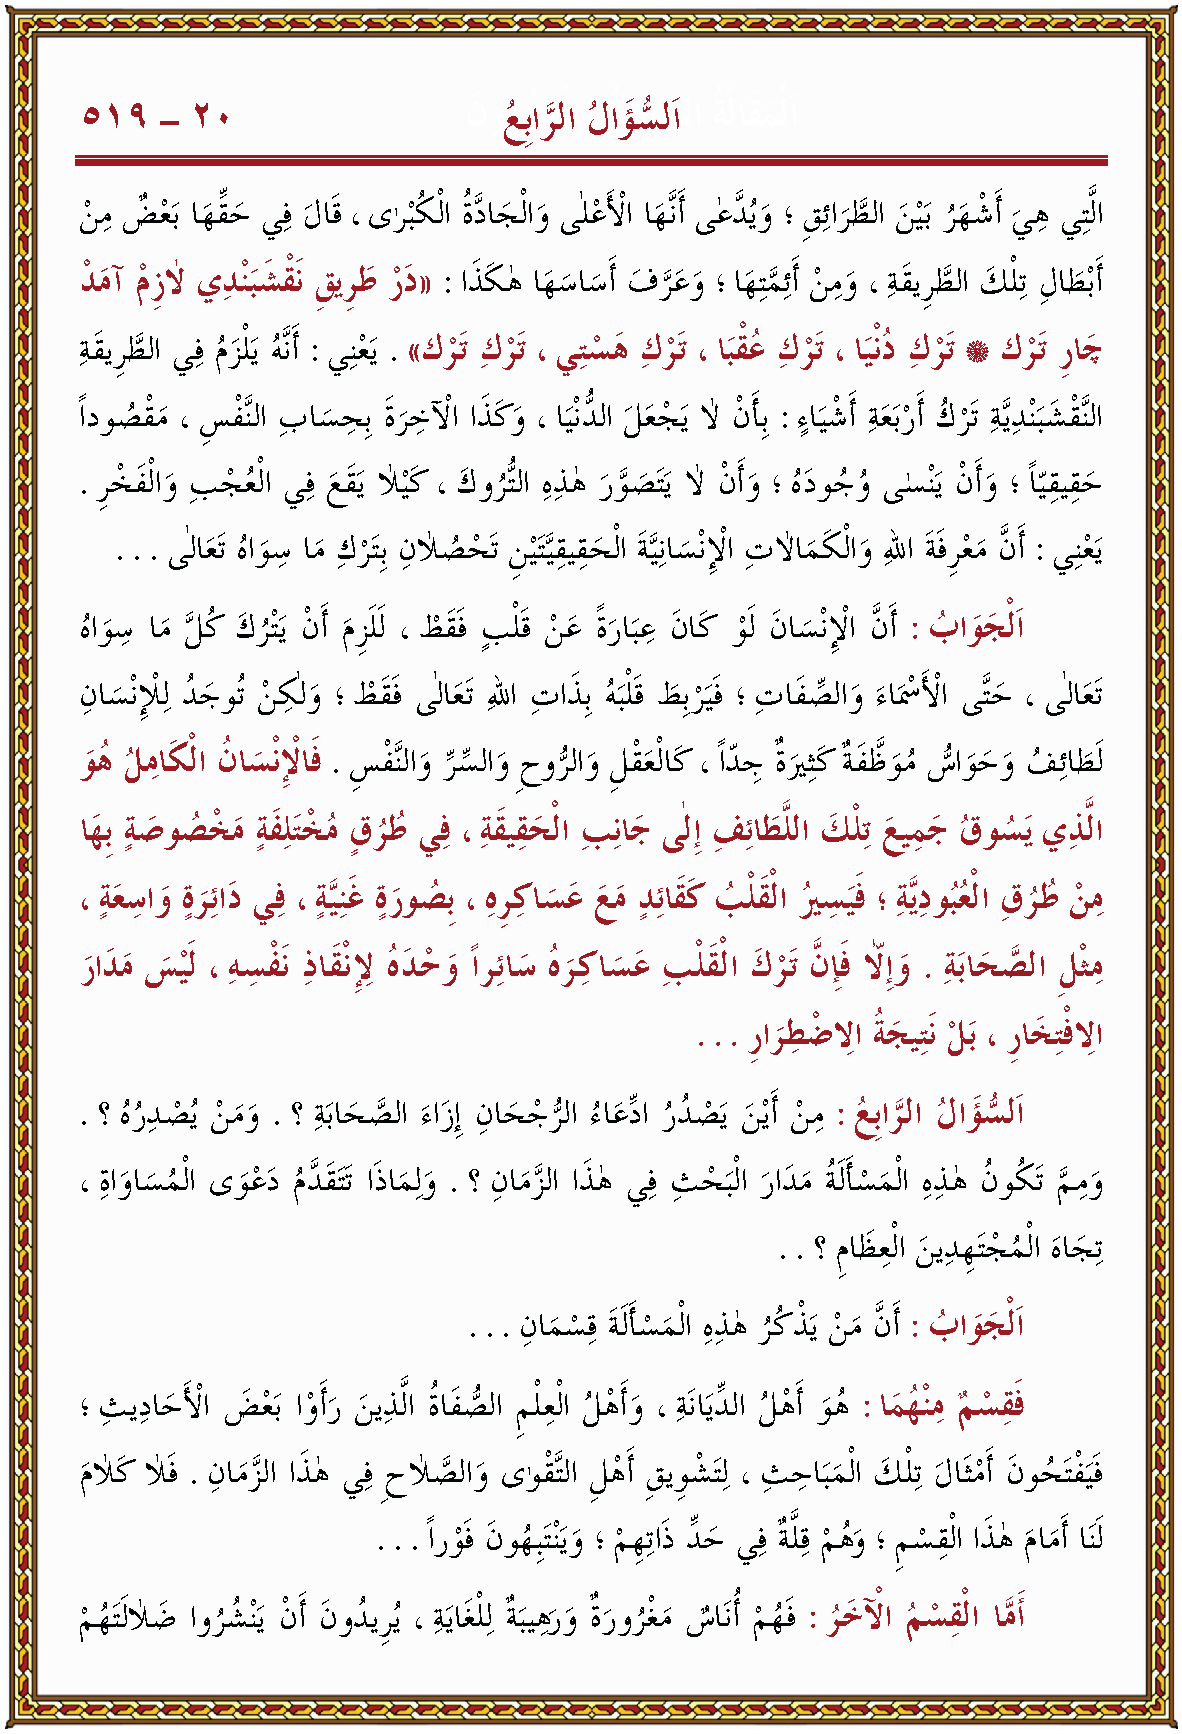 اَلسُّؤَالُ الرَّابِعُ ٢٠ – ٥١٩
الَّتِي هِيَ أَشْهَرُ بَيْنَ الطَّرَائِقِ ؛ وَيُدَّعٰى أَنَّهَا الْأَعْلٰى وَالْجَادَّةُ الْكُبْرٰى ، قَالَ فِي حَقِّهَا بَعْضٌ مِنْ
أَبْطَالِ تِلْكَ الطَّرِيقَةِ ، وَمِنْ أَئِمَّتِهَا ؛ وَعَرَّفَ أَسَاسَهَا هٰكَذَا : «دَرْ طَرِيقِ نَقْشَبَنْدِي لَازِمْ آمَدْ
چَارِ تَرْك ۞ تَرْكِ دُنْيَا ، تَرْكِ عُقْبَا ، تَرْكِ هَسْتِي ، تَرْكِ تَرْك» . يَعْنِي : أَنَّهُ يَلْزَمُ فِي الطَّرِيقَةِ
النَّقْشَبَنْدِيَّةِ تَرْكُ أَرْبَعَةِ أَشْيَاءٍ : بِأَنْ لَا يَجْعَلَ الدُّنْيَا ، وَكَذَا الْآخِرَةَ بِحِسَابِ النَّفْسِ ، مَقْصُوداً
حَقِيقِيّاً ؛ وَأَنْ يَنْسٰى وُجُودَهُ ؛ وَأَنْ لَا يَتَصَوَّرَ هٰذِهِ التُّرُوكَ ، كَيْلَا يَقَعَ فِي الْعُجْبِ وَالْفَخْرِ .
يَعْنِي : أَنَّ مَعْرِفَةَ اللهِ وَالْكَمَالَاتِ الْإِنْسَانِيَّةَ الْحَقِيقِيَّتَيْنِ تَحْصُلَانِ بِتَرْكِ مَا سِوَاهُ تَعَالٰى . . .
اَلْجَوَابُ : أَنَّ الْإِنْسَانَ لَوْ كَانَ عِبَارَةً عَنْ قَلْبٍ فَقَطْ ، لَلَزِمَ أَنْ يَتْرُكَ كُلَّ مَا سِوَاهُ
تَعَالٰى ، حَتَّى الْأَسْمَاءَ وَالصِّفَاتِ ؛ فَيَرْبِطَ قَلْبَهُ بِذَاتِ اللهِ تَعَالٰى فَقَطْ ؛ وَلٰكِنْ تُوجَدُ لِلْإِنْسَانِ
لَطَائِفُ وَحَوَاسُّ مُوَظَّفَةٌ كَثِيرَةٌ جِدّاً ، كَالْعَقْلِ وَالرُّوحِ وَالسِّرِّ وَالنَّفْسِ . فَالْإِنْسَانُ الْكَامِلُ هُوَ
الَّذِي يَسُوقُ جَمِيعَ تِلْكَ اللَّطَائِفِ إِلٰى جَانِبِ الْحَقِيقَةِ ، فِي طُرُقٍ مُخْتَلِفَةٍ مَخْصُوصَةٍ بِهَا
مِنْ طُرُقِ الْعُبُودِيَّةِ ؛ فَيَسِيرُ الْقَلْبُ كَقَائِدٍ مَعَ عَسَاكِرِهِ ، بِصُورَةٍ غَنِيَّةٍ ، فِي دَائِرَةٍ وَاسِعَةٍ ،
مِثْلِ الصَّحَابَةِ . وَإِلَّا فَإِنَّ تَرْكَ الْقَلْبِ عَسَاكِرَهُ سَائِراً وَحْدَهُ لِإِنْقَاذِ نَفْسِهِ ، لَيْسَ مَدَارَ
الِافْتِخَارِ ، بَلْ نَتِيجَةُ الِاضْطِرَارِ . . .
اَلسُّؤَالُ الرَّابِعُ : مِنْ أَيْنَ يَصْدُرُ ادِّعَاءُ الرُّجْحَانِ إِزَاءَ الصَّحَابَةِ ؟ . وَمَنْ يُصْدِرُهُ ؟ .
وَمِمَّ تَكُونُ هٰذِهِ الْمَسْأَلَةُ مَدَارَ الْبَحْثِ فِي هٰذَا الزَّمَانِ ؟ . وَلِمَاذَا تَتَقَدَّمُ دَعْوَى الْمُسَاوَاةِ ،
تِجَاهَ الْمُجْتَهِدِينَ الْعِظَامِ ؟ . .
اَلْجَوَابُ : أَنَّ مَنْ يَذْكُرُ هٰذِهِ الْمَسْأَلَةَ قِسْمَانِ . . .
فَقِسْمٌ مِنْهُمَا : هُوَ أَهْلُ الدِّيَانَةِ ، وَأَهْلُ الْعِلْمِ الصُّفَاةُ الَّذِينَ رَأَوْا بَعْضَ الْأَحَادِيثِ ؛
فَيَفْتَحُونَ أَمْثَالَ تِلْكَ الْمَبَاحِثِ ، لِتَشْوِيقِ أَهْلِ التَّقْوٰى وَالصَّلَاحِ فِي هٰذَا الزَّمَانِ . فَلَا كَلَامَ
لَنَا أَمَامَ هٰذَا الْقِسْمِ ؛ وَهُمْ قِلَّةٌ فِي حَدِّ ذَاتِهِمْ ؛ وَيَنْتَبِهُونَ فَوْراً . . .
أَمَّا الْقِسْمُ الْآخَرُ : فَهُمْ أُنَاسٌ مَغْرُورَةٌ وَرَهِيبَةٌ لِلْغَايَةِ ، يُرِيدُونَ أَنْ يَنْشُرُوا ضَلَالَتَهُمْ